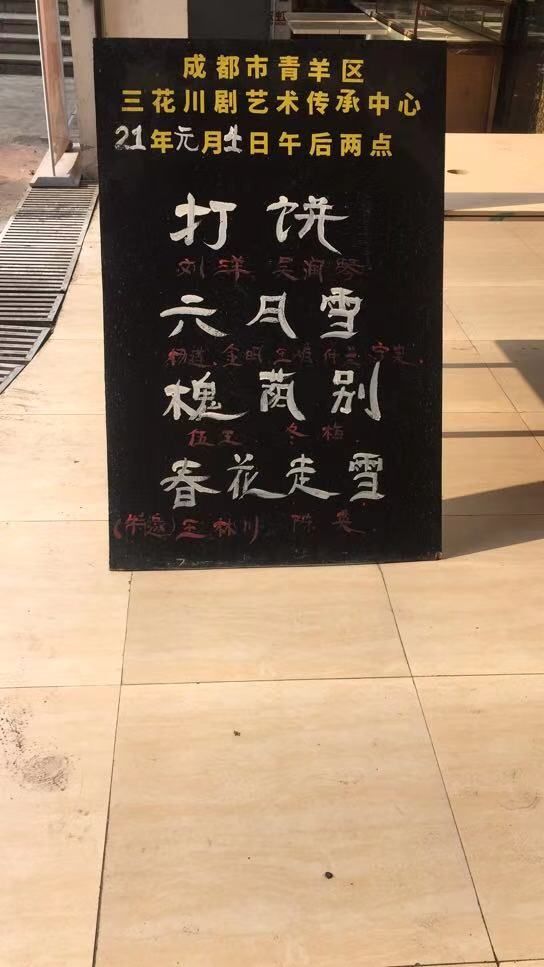 成都市青羊区
三花川剧艺术传承中心
21年元月生日午后两点
打饼
刘洋 吴润琴
六月雪
金明
槐荫别
伍工 冬梅
春花走雪
(午逸)王林川 陈英